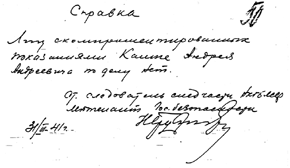 50
Справка
Лиц скомпрометированных
показаниями Каппе Андрея
Андреевича по делу нет.
Ст. следователь следчасти
лейтенант Гос. безопасности
31/III-41г.